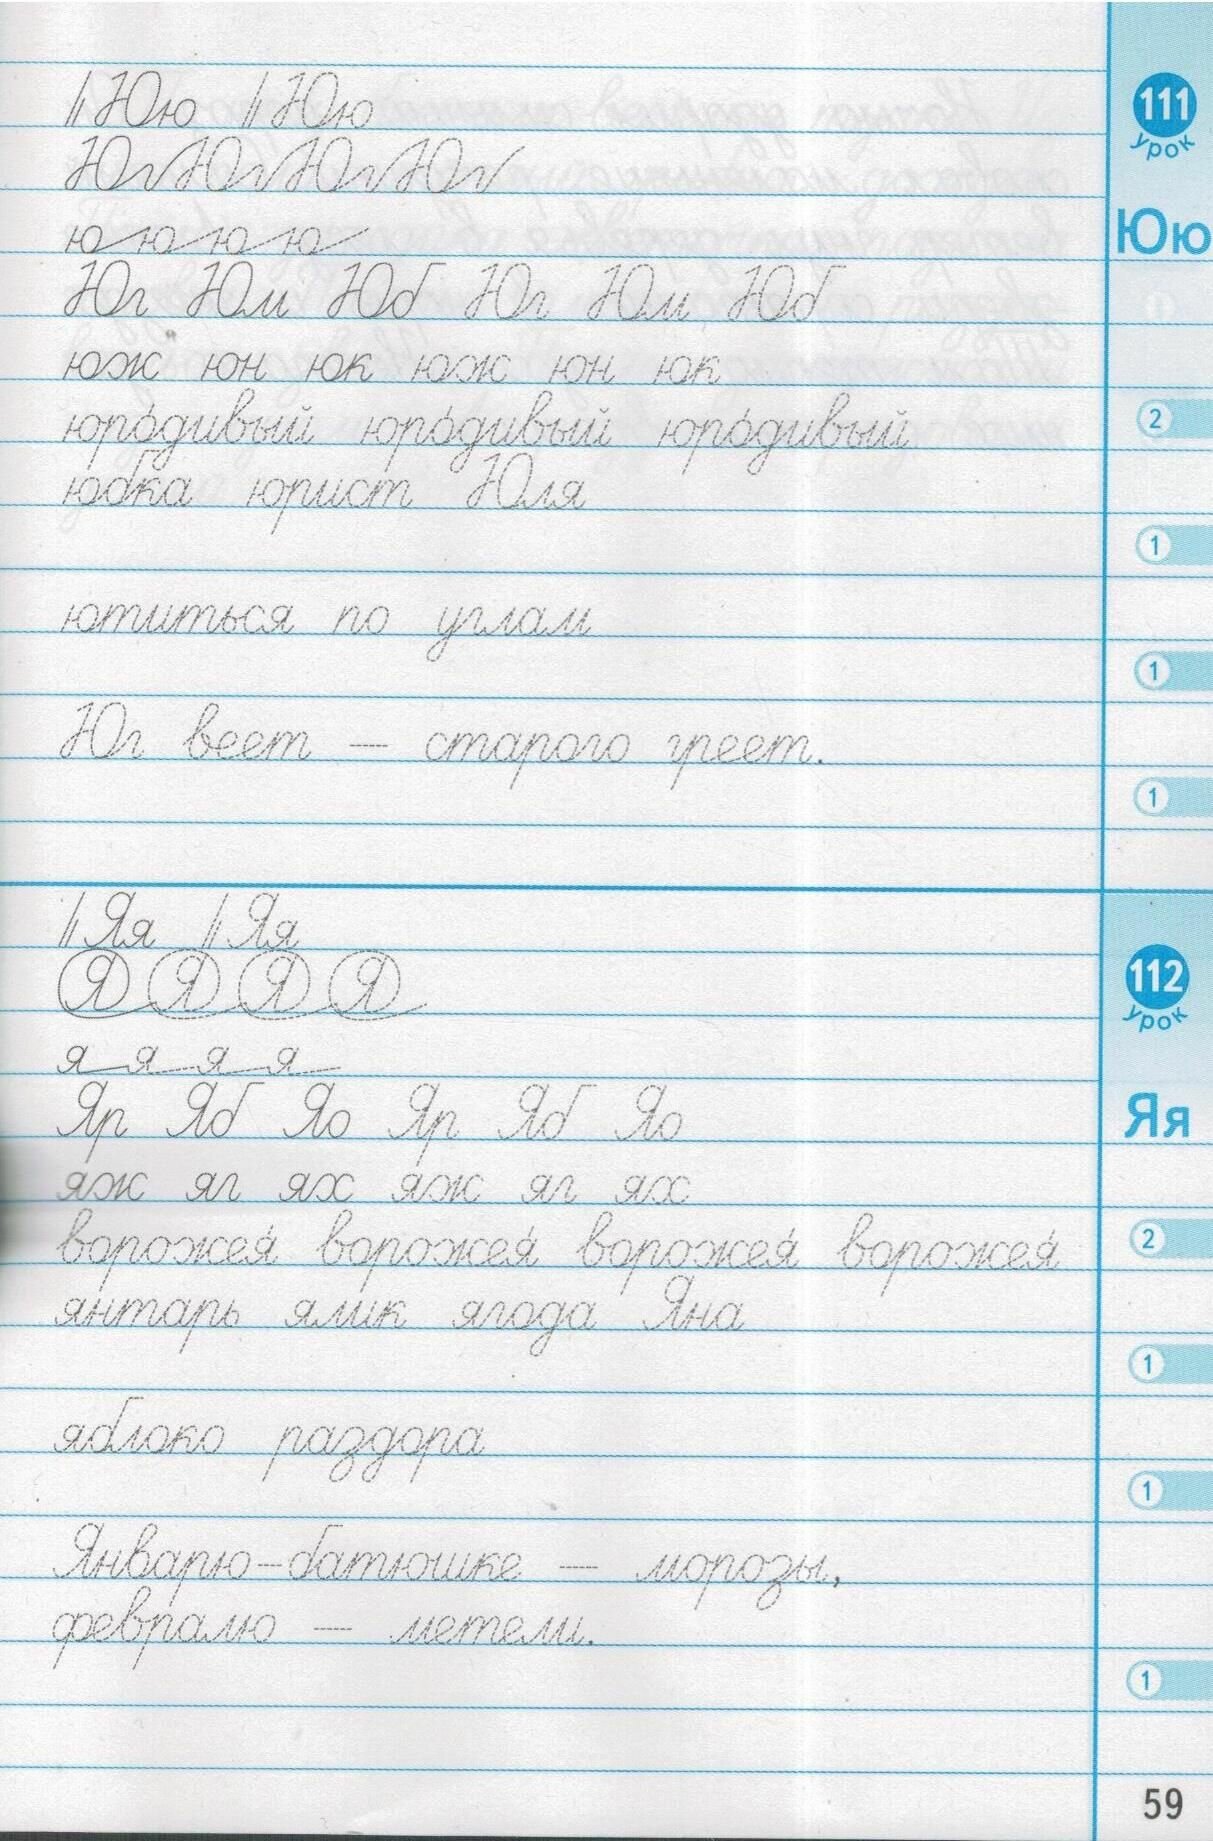 Юю Юю
Ю Ю Ю Ю
ю ю ю ю
Юг Юм Юб Юг Юм Юб
юж юн юк юж юн юк
юро́дивый юро́дивый юро́дивый
юбка юрист Юля
ютиться по углам
Юг веет — старого греет.
111
урок
Юю
2
1
1
1
Яя Яя
Я Я Я Я
я я я я
Яр Яб Яо Яр Яб Яо
яж яг ях яж яг ях
ворожея́ ворожея́ ворожея́ ворожея́
янтарь ямщик ягода Яна
яблоко раздора
Январю-батюшке — морозы,
февралю — метели.
112
урок
Яя
2
1
1
1
59